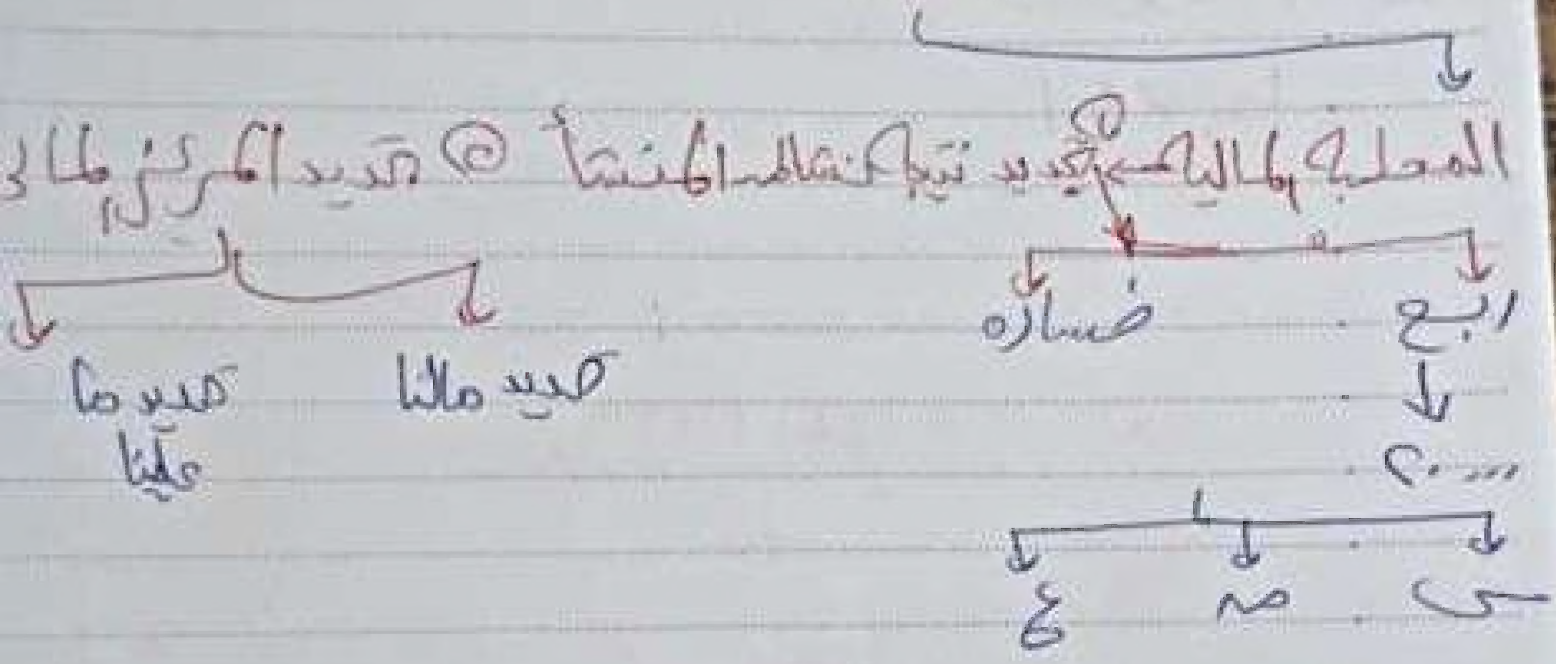 المحاسبة المالية ① تحديد نتيجة نشاط المنشأة ② تحديد المركز المالي
ربح خسارة
تحديد مالنا تحديد ما
علينا
٢٠...
س ص ع